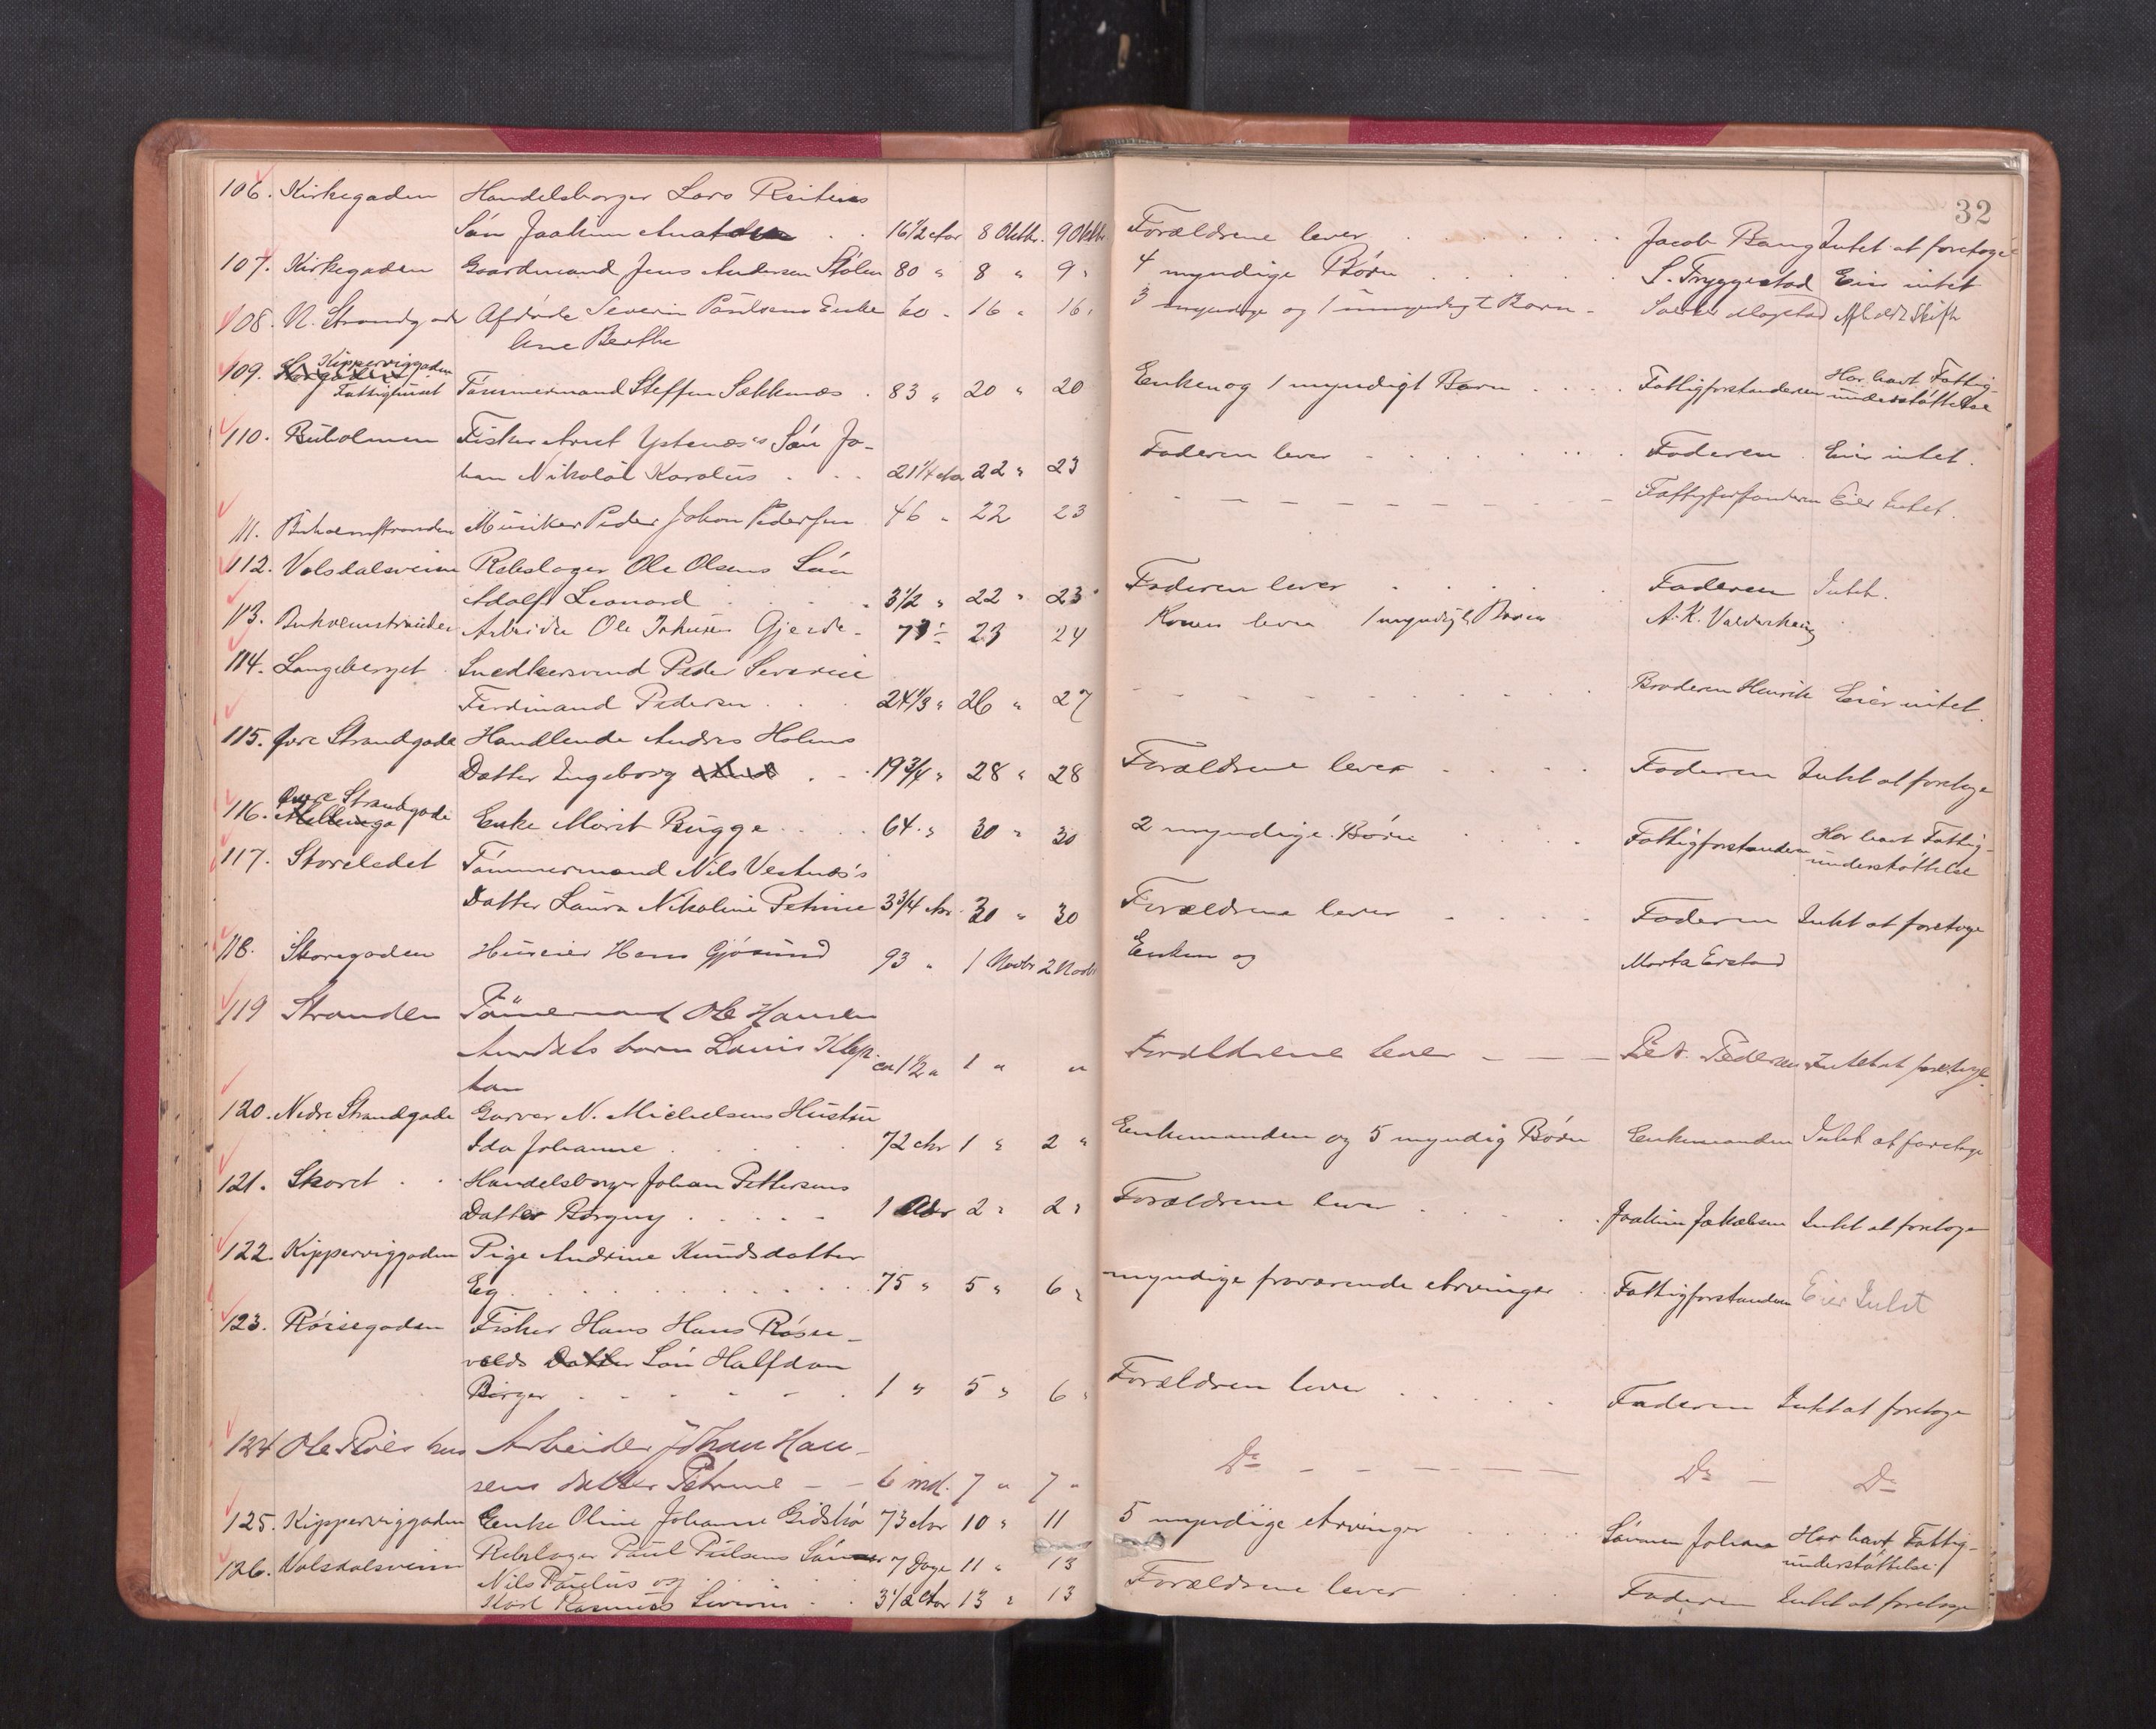 32
106. Kirkegaden Handelsborger Lars Reitens
Sön Joakim . . 16½ Aar 8 Oktbr. 9 Oktbr. Forældrene lever . . . . . . . Jacob Bang Intet at foretage
107. Kirkegaden Gaardmand Jens Andersen Stölen 80 " 8 " 9 " 4 myndige Börn . . . . . S. Tryggestad Eier intet
108. N. Strandgade Afdöde Severin Paulsens Enke 60 " 16 " 16 " 3 myndige og 1 umyndigt Barn - Afholdt Skifte
Ane Berthe
109. Storgaden Kipperviggaden
Fattighuset Tömmermand Steffen Sækkenæs . 83 " 20 " 20 Enken og 1 myndigt Barn . . . . Fattigforstanderen Har havt Fattig-
understöttelse
110. Buholmen Fisker Knut Ystenæs's Sön Jo-
han Nikolai Karolius . . . 21¼ Aar 22 " 23 Faderen lever . . . . . . . Faderen . Eier intet.
111. Buholmstranden Musiker Peder Johan Pedersen 46 " 22 23 - - - - - - - - Fattigforstanderen Eier Intet.
112. Volsdalsveien Rebslager Ole Olsens Sön
Adolf Leonard . . . . 3½ " 22 " 23 " Faderen lever . . . . Faderen Intet.
113. Buholmstranden Arbeider Ole Johnsen Gjerde - 73 - 23 24 Konen lever 1 myndigt Barn A. K. Valderhaug
114. Langeberget . Snedkersvend Peder Severin
Ferdinand Pedersen . . . 24⅓ " 26 " 27 - - - - - - - - Broderen Henrik Eier intet.
115. Övre Strandgade Handlende Andreas Holms
Datter Ingeborg . . . 19¾ " 28 " 28 Forældrene lever . . . . Faderen Intet at foretage
116. Övre Strandgade
Mellemga Enke Marit Bugge . . . . 64 " 30 " 30 2 myndige Börn . . . Fattigforstanderen Har havt Fattig-
understöttelse
117. Storeledet Tömmermand Nils Vestnæs's
Datter Laura Nikoline Petrine 3¾ Aar 30 " 30 Forældrene lever . . . . Faderen Intet at foretage
118. Storegaden Huseier Hans Gjösund 93 " 1 Novbr 2 Novbr Enken og Marta Erstad
119 Stranden Tömmermand Ole Hansen
Aurdals barn Louis Klep-
tan ca 1½ " 1 " " Forældrene lever - - - Pet. Pedersen Intet at foretage.
120. Nedre Strandgade Garver N. Michelsens Hustru
Ida Johanne . . . . . 72 Aar 1 " 2 " Enkemanden og 5 myndig Börn Enkemanden Intet at foretage
121. Skaret . . Handelsborger Johan Pettersens
Datter Borgny . . . . - 1 Aar 2 " 2 " Forældrene lever . . . . . Joakim Jakobsen Intet at foretage
122. Kipperviggaden Pige Andrine Knudsdatter
Eg . . . . . . . . . . . 75 " 5 " 6 " myndige fraværende Arvinger . . Fattigforstanderen Eier Intet
123. Röisegaden Fisker Hans Hans Rosen-
volds Datter Sön Halfdan
Birger . . - - - . 1 " 5 " 6 " Forældren lever . . . . Faderen Intet at foretage
124 Ole Röes hus Arbeider Johan Han-
sens datter Petrine - - 6 md. 7 " 7 " Do - - - - - - Do - Do
125. Kipperviggaden Enke Oline Johanne Gidskö 73 Aar 10 " 11 5 myndige Arvinger . . . . Sönnen Johan Har havt Fattig-
understöttelse.
126. Volsdalsveien Rebslager Paul Pulsens Sönner 7 Dage 11 " 13
Nils Paulus og
Karl Rasmus Severin . . 3½ Aar 13 " 13 Forældrene lever . . . Faderen Intet at foretage